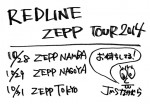 REDLINE
ZEPP TOUR 2014
10/28 ZEPP NAMBA
10/29 ZEPP NAGOYA
10/31 ZEPP TOKYO
お待ちしてる!